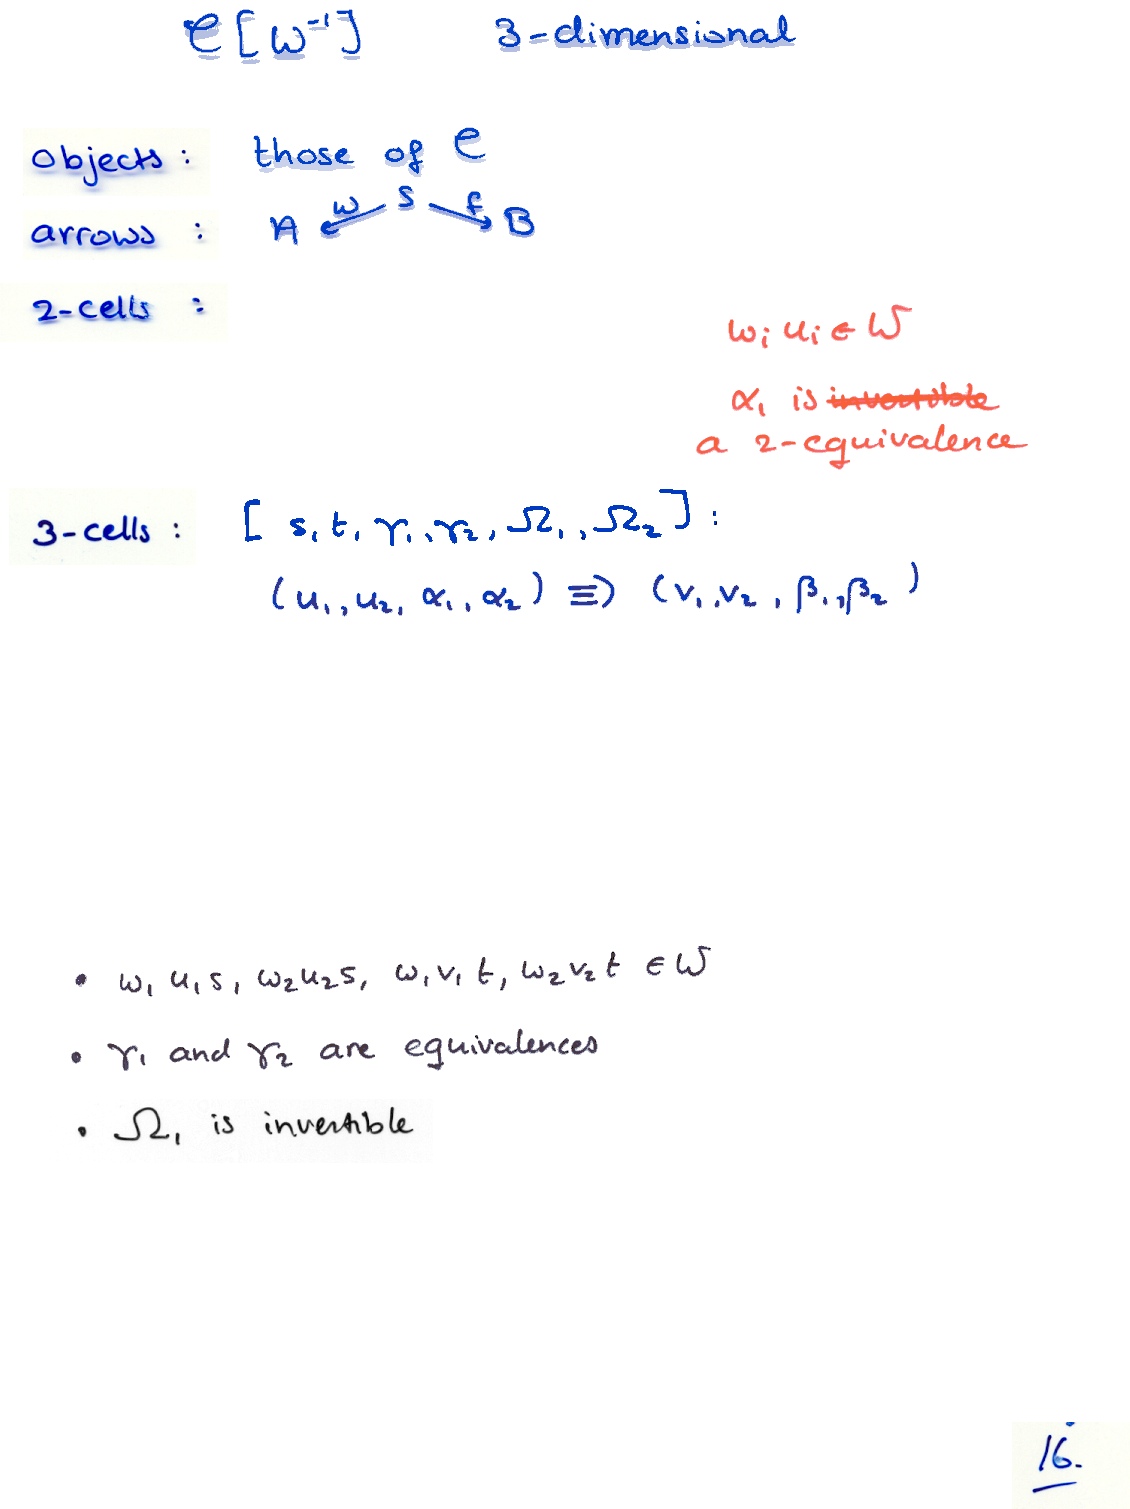 𝒞[W⁻¹] 3-dimensional
objects: those of 𝒞
arrows: A ←w S f→ B
2-cells:
wᵢ uᵢ ∈ W
α₁ is ~~invertible~~
a 2-equivalence
3-cells: [s, t, γ₁, γ₂, Ω₁, Ω₂]:
(u₁, u₂, α₁, α₂) ≡> (v₁, v₂, β₁, β₂)
• w₁u₁s, w₂u₂s, w₁v₁t, w₂v₂t ∈ W
• γ₁ and γ₂ are equivalences
• Ω₁ is invertible
16.